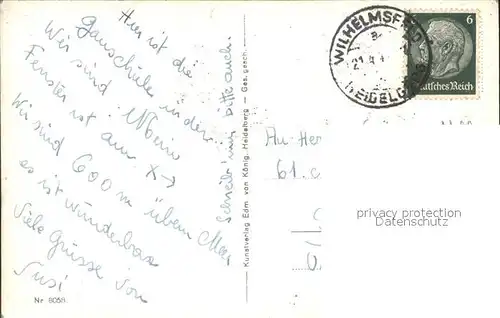 Hier ist die
Gauschule in der
Wir sind. Mein
Fenster ist am X→
Wir sind 600 m überm Meer
es ist wunderbar
Viele Grüsse von
Susi
Schreib mir bitte auch.
Nr. 8058
Kunstverlag Edm. von König, Heidelberg - Ges. gesch.
WILHELMSFELD
a
HEIDELBERG
6
Deutsches Reich
An Her
61. c
privacy protection
Datenschutz